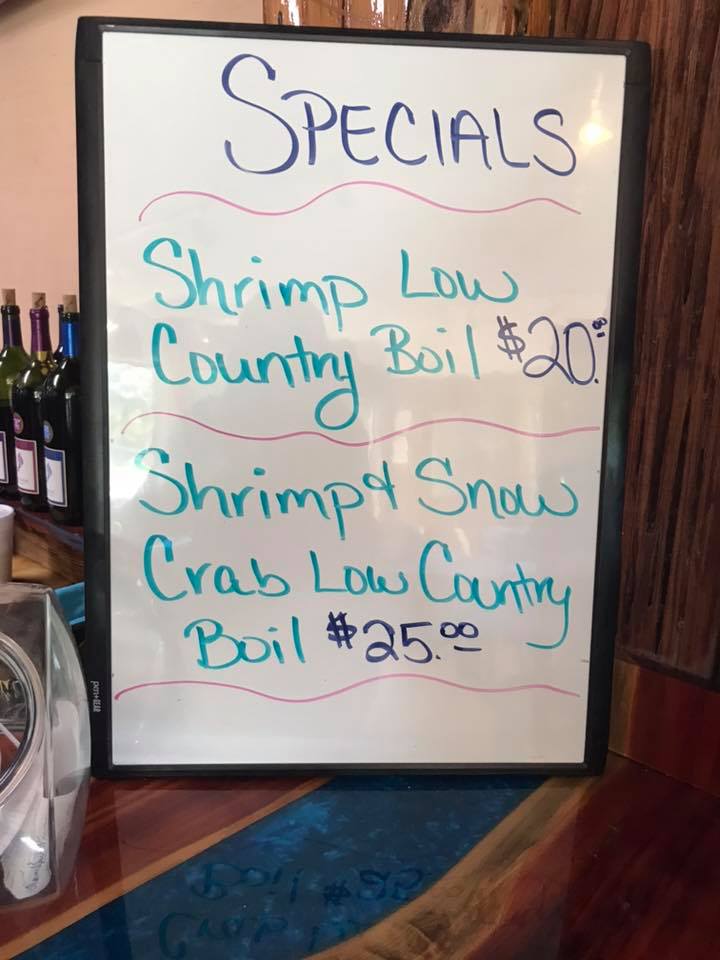 SPECIALS
Shrimp Low
Country Boil $20.00
Shrimp & Snow
Crab Low Country
Boil $25.00